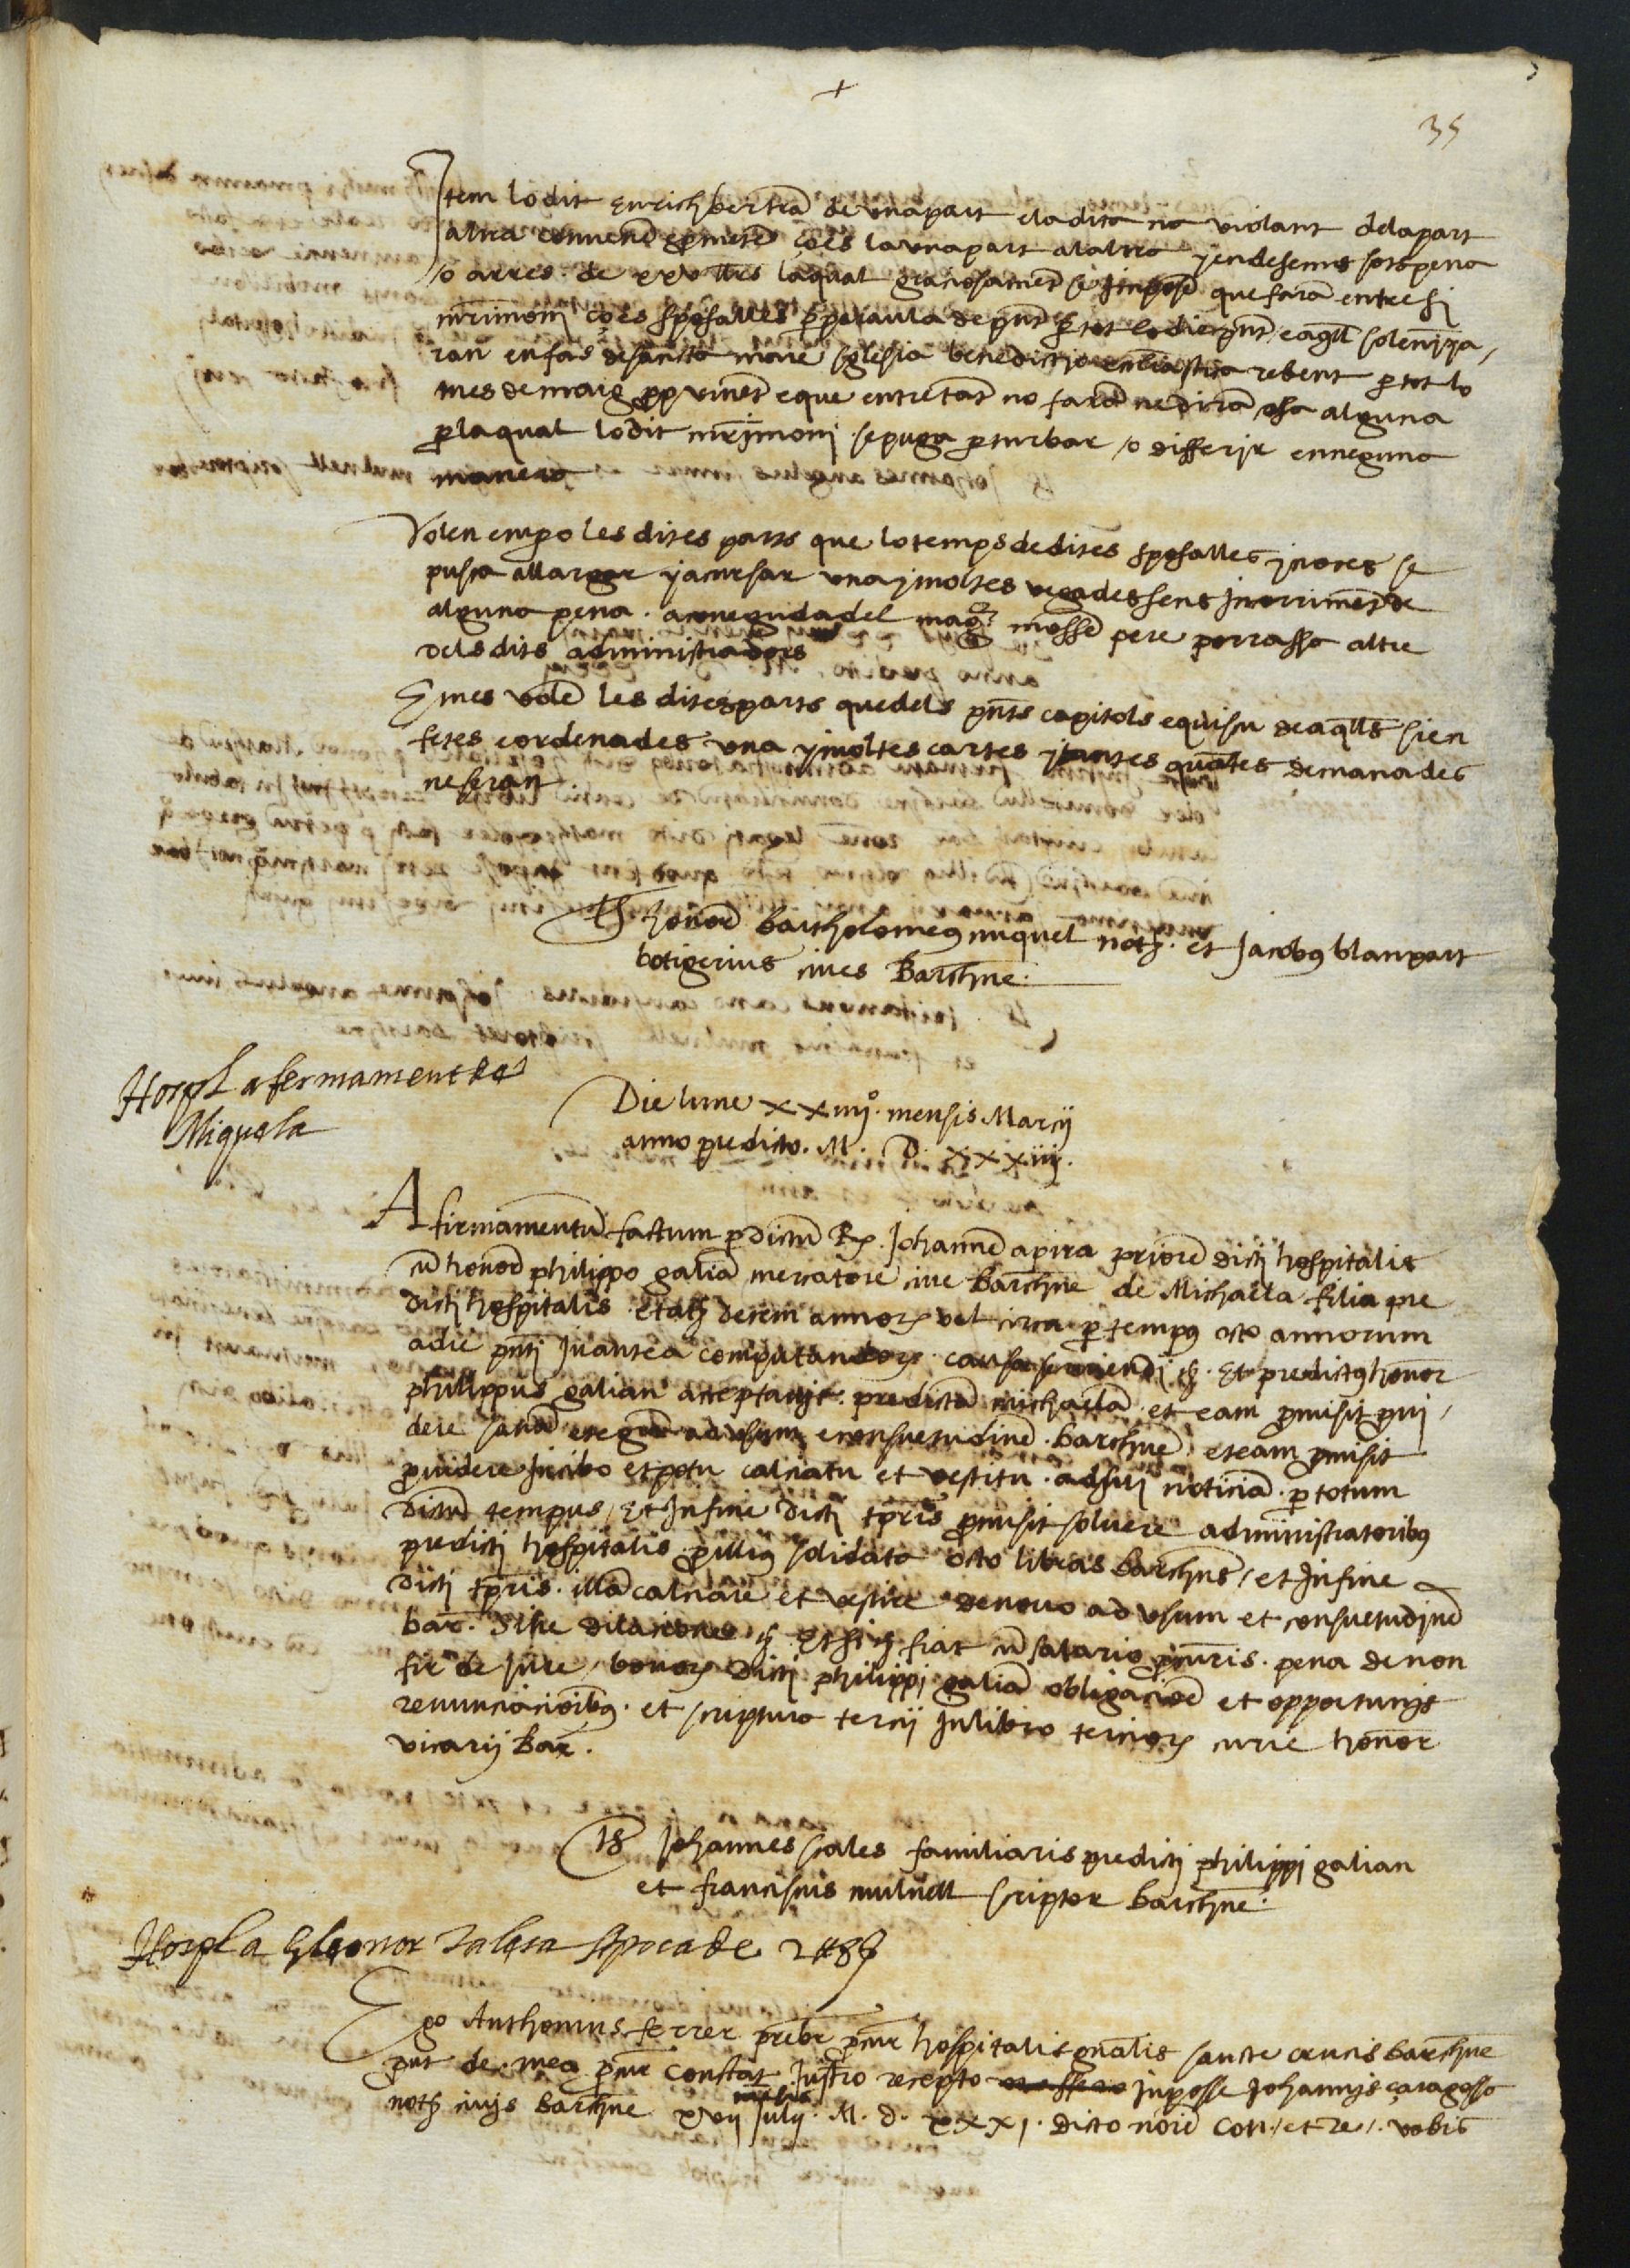 +
35
Item lo dit Enrich bertrā de una part e la dita na violant dela part
altra convenē e pmetē ço es la una part a la altra y endesems sots pena
o arres de xxv llrs la qual graciosament se imposē que farā entre si
mrimoni ço es sposalles p paraula de pnt p tot lo die pnt e aqll solemniza/
ran en fas de sancta mare sglesia benedictio ecclīastica rebent p tot lo
mes de maig pp vinēt e que entretāt no farā ne dirā cosa alguna
p la qual lo dit mrjmonj se puga pturbar o differir en neguna
manera
Volen empo les dites parts que lo temps de dites sposalles y noces se
pusca allargar y acursar una y moltes vegades sens incorrimēt de
alguna pena a coneguda del magch mossē pere porrassa altre
dels dits administradors
E mes volē les dites parts que dels pnts capitols e quisu de aqlls sien
fetes e ordenades una y moltes cartes y tantes quātes demanades
ne seran
Ts honorē Bartholomeus miquel noty et Jacobus blanpart
botigerius cives Barchne
Hospl afermament de
Miquela
Die lune xxiiijº mensis Marcij
anno predicto M D xxxiiij
Afirmamentū factum p dictū R. Johannē apira priorē dicti hospitalis
cū honorē philippo galiā mercatore cive Barchne de Michaela filia pre
dicti hospitalis etatis decem annorz vel circa p tempus octo annorum
a die pnti in antea computandorz causa serviendi etc Et predictus honor
philippus galian acceptavit predictā michaelā et eam pmisit pvi/
dere sanā et egrā ad usum e consuetudinē barchne et eam pmisit
pvidere in cibo et potu calciatu et vestitu ad sui noticiā p totum
dictū tempus / Et in fine dicti tpris pmisit solvere administratoribus
predicti hospitalis p illius solidata octo libras barchns / et in fine
dicti tpris illā calciare et vestire de novo ad usum et consuetudinē
bar. Sine dilacione etc Et hic etc fiat cū salario pcuris pena de non
fir de jure bonorz dicti philippi galiā obligacionē et opportunis
renunciacionibus et scriptura tercii in libro terciorz curie honor
vicarij Bar.
Ts Johannes scales familiaris predicti philippi galian
et franciscus mulnell scriptor barchne
Hospl a Elleonor
Ego Anthonius ferrer prebr pcur hospitalis gnalis sancte crucis barchne
put de mea pcur constat instro recepto in posse Johannis çaragossa
noty civis barchne xvij Julij M. D. xxxj. dicto noie con. et re. vobis